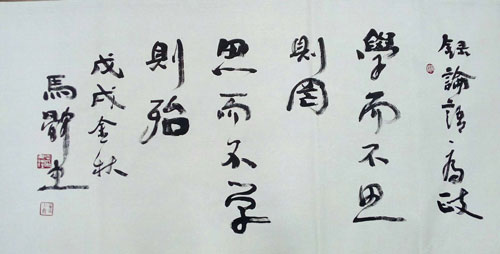 録論語、為政
學而不思
則罔
思而不学
則殆
戊戌金秋
馬